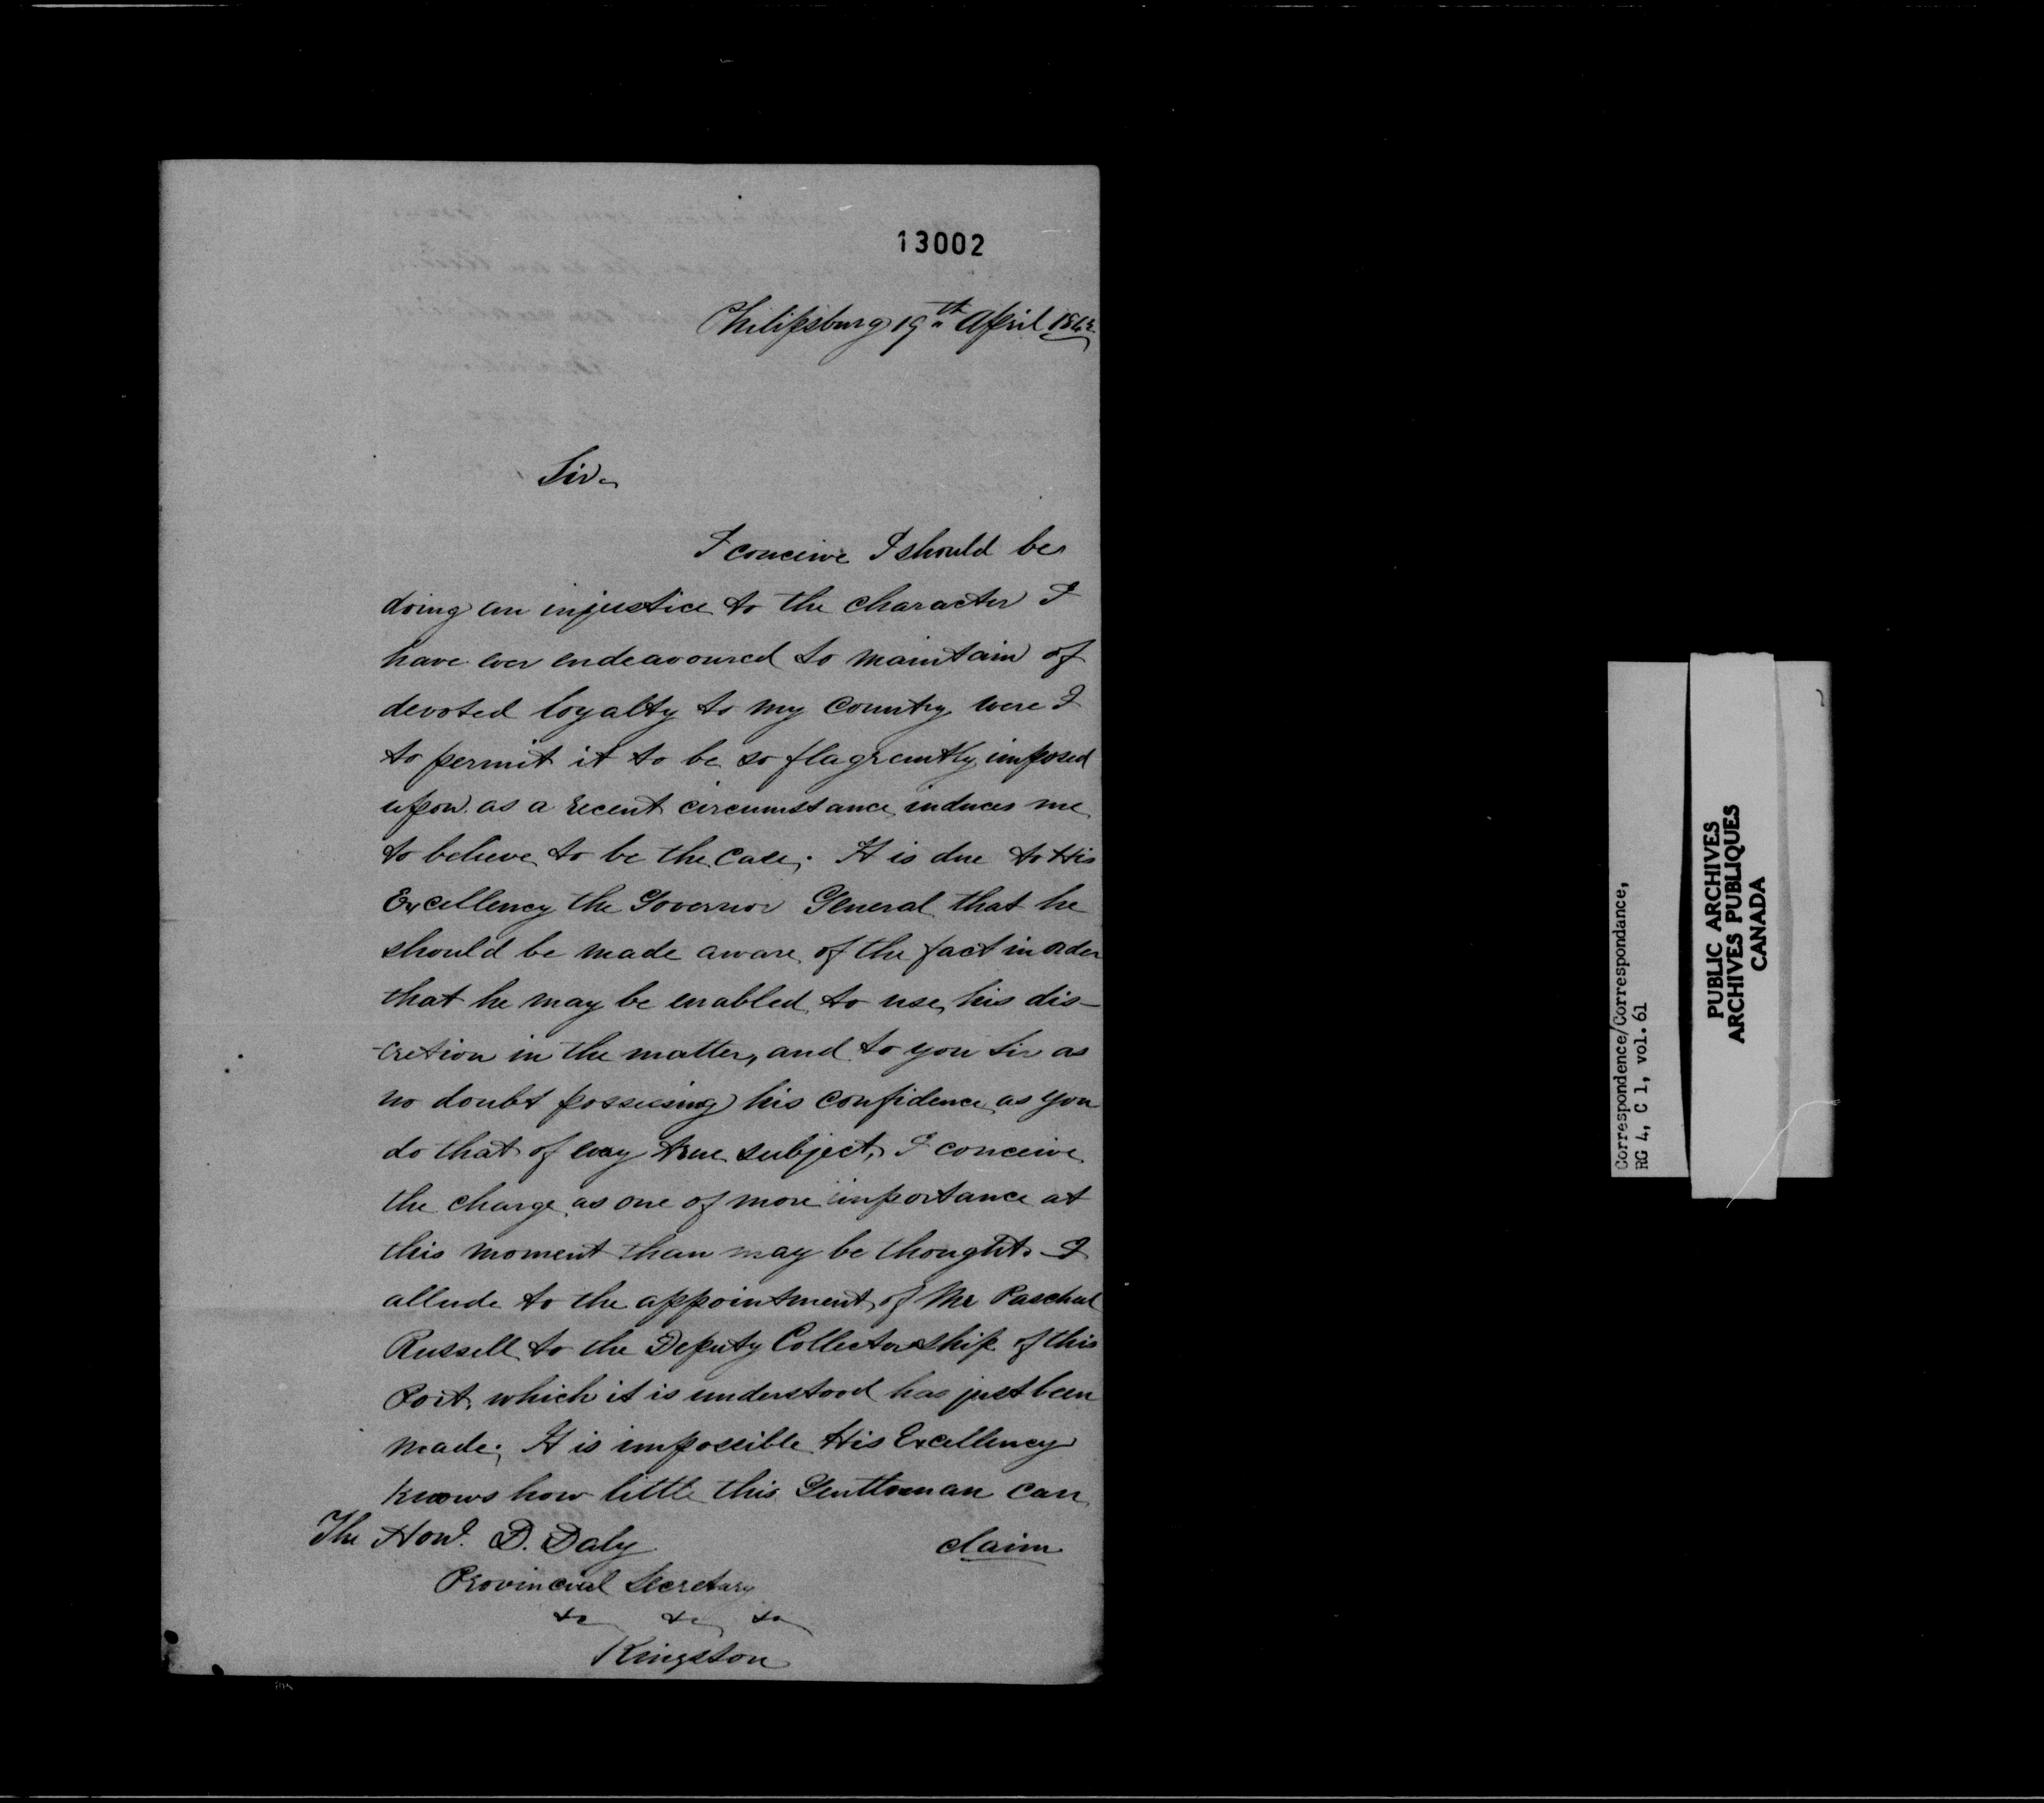 13002
Philipsburg 19th April 1843
Sir
I conceive I should be
doing an injustice to the character I
have ever endeavoured to maintain of
devoted loyalty to my Country were I
to permit it to be so flagrantly imposed
upon as a recent circumstance induces me
to believe to be the case; It is due to His
Excellency the Governor General that he
should be made aware of the fact in order
that he may be enabled to use his dis-
-cretion in the matter, and to you Sir as
no doubt possessing his confidence as you
do that of every true subject, I conceive
the charge as one of more importance at
this moment than may be thought. I
allude to the appointment of Mr Paschal
Russell to the Deputy Collectorship of this
Port, which it is understood has just been
made; It is impossible His Excellency
knows how little this Gentleman can
claim
The Honl. D. Daly
Provincial Secretary
&c &c &c
Kingston
Correspondence/Correspondance,
RG 4, C 1, vol. 61
PUBLIC ARCHIVES
ARCHIVES PUBLIQUES
CANADA